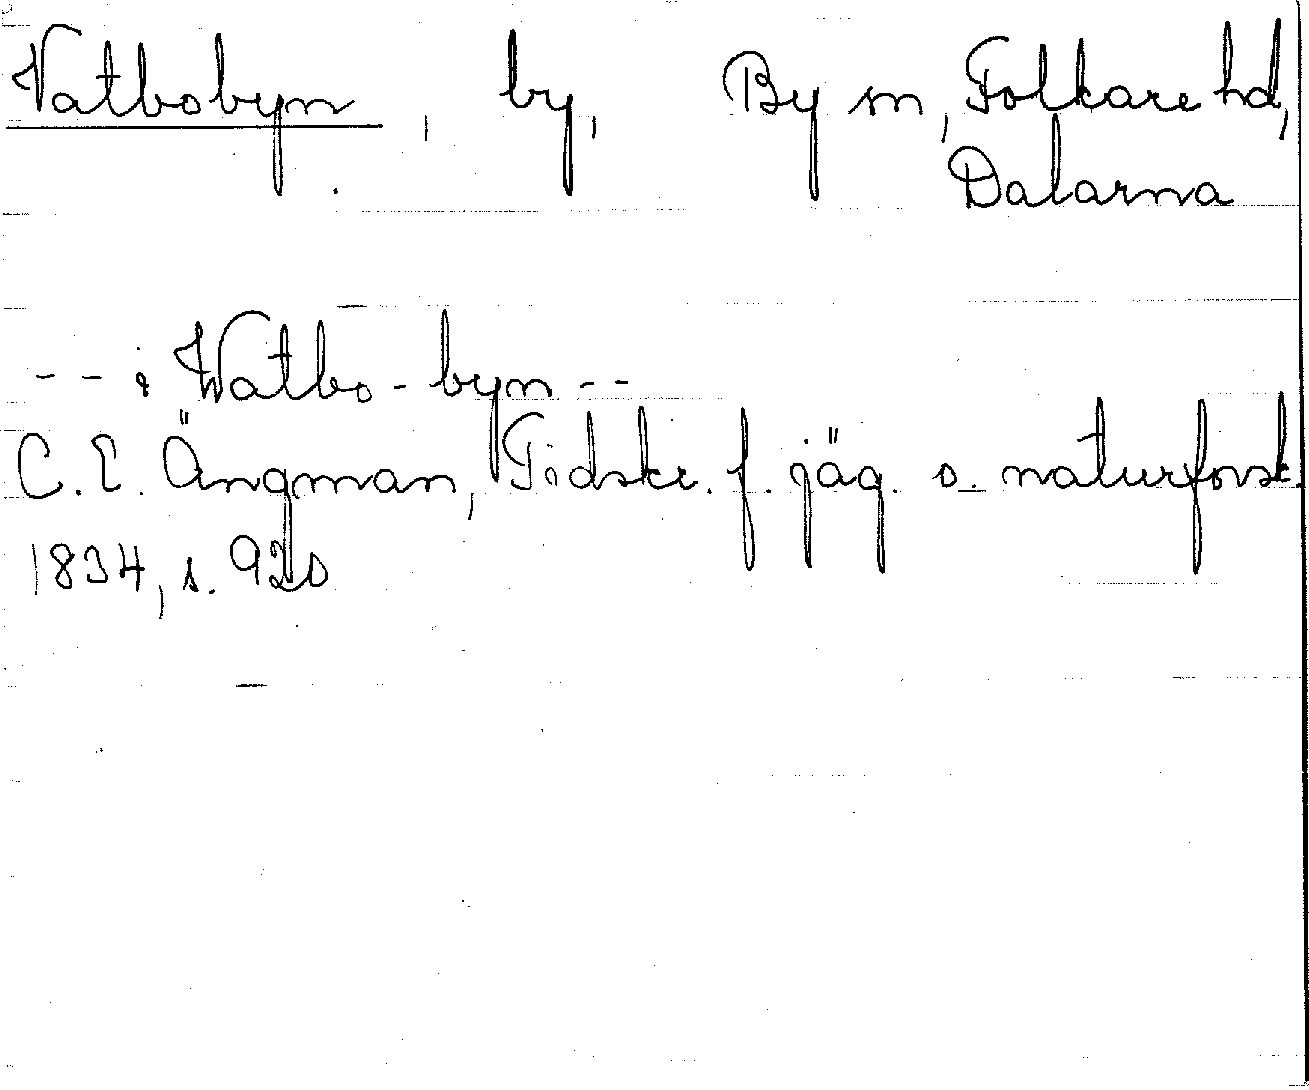 Vatbobyn, by, By sn, Folkare hd,
Dalarna
-- i Watbo-byn --
C. E. Ängman, Tidskr. f. jäg. o. naturforsk.
1834, s. 920